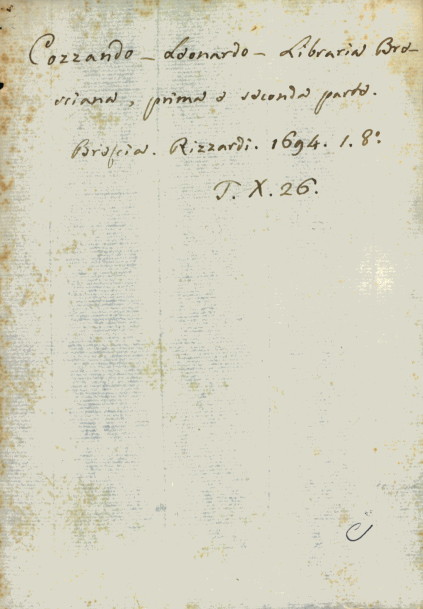 Cozzando – Leonardo – Libraria Bre-
sciana, prima e seconda parte.
Brescia. Rizzardi. 1694. 1. 8.º
T. X. 26.